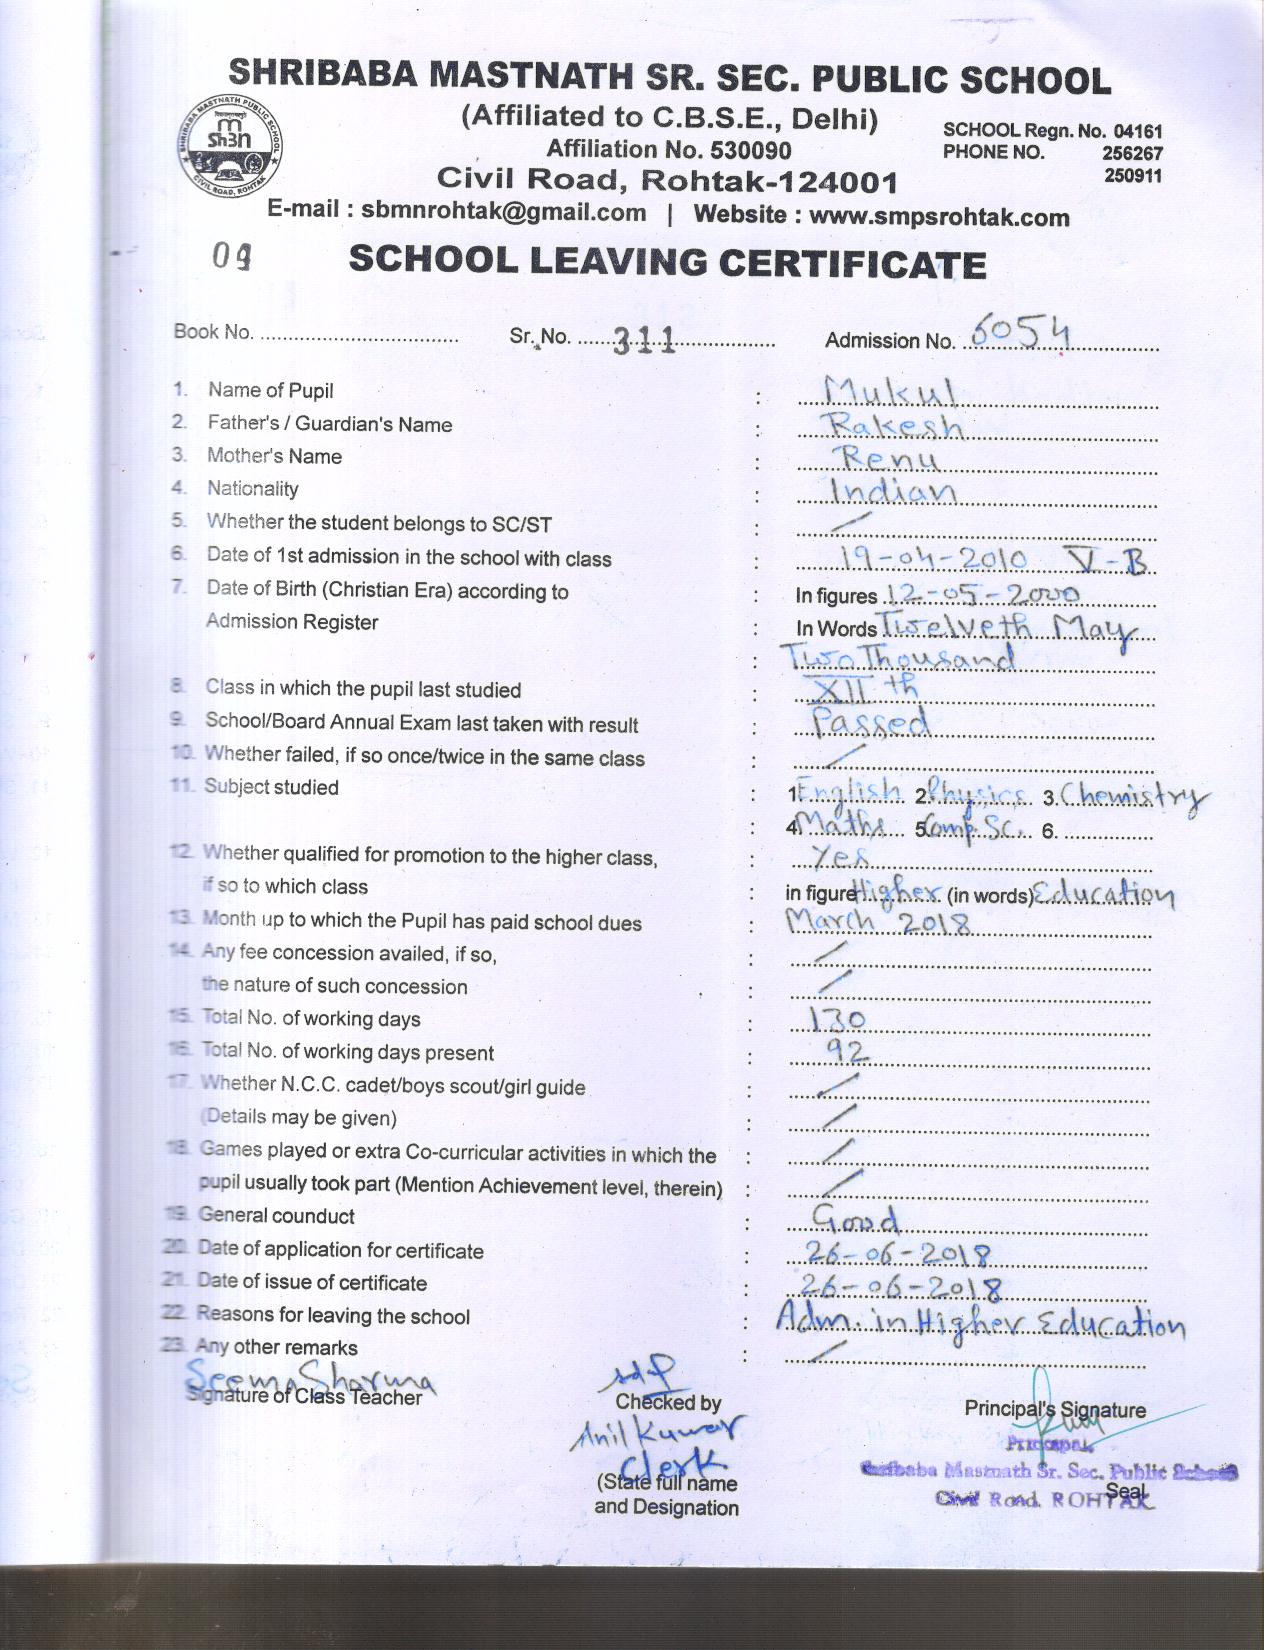 SHRIBABA MASTNATH SR. SEC. PUBLIC SCHOOL
(Affiliated to C.B.S.E., Delhi)
Affiliation No. 530090
SCHOOL Regn. No. 04161
PHONE NO. 256267
250911
SHRIBABA MASTNATH PUBLIC SCHOOL
Sh3n
CIVIL ROAD, ROHTAK
Civil Road, Rohtak-124001
E-mail : sbmnrohtak@gmail.com | Website : www.smpsrohtak.com
09 SCHOOL LEAVING CERTIFICATE
Book No. Sr. No. 311 Admission No. 6054
1. Name of Pupil : Mukul
2. Father's / Guardian's Name : Rakesh
3. Mother's Name : Renu
4. Nationality : Indian
5. Whether the student belongs to SC/ST : /
6. Date of 1st admission in the school with class : 19-04-2010 V-B
7. Date of Birth (Christian Era) according to : In figures 12-05-2000
Admission Register : In Words Twelveth May
: Two Thousand
8. Class in which the pupil last studied : XII th
9. School/Board Annual Exam last taken with result : Passed
10. Whether failed, if so once/twice in the same class : /
11. Subject studied : 1 English 2. Physics 3. Chemistry
: 4 Maths 5 Comp. Sc. 6.
12. Whether qualified for promotion to the higher class, : Yes
if so to which class : in figure Higher (in words) Education
13. Month up to which the Pupil has paid school dues : March 2018
14. Any fee concession availed, if so, : /
the nature of such concession : /
15. Total No. of working days : 130
16. Total No. of working days present : 92
17. Whether N.C.C. cadet/boys scout/girl guide : /
(Details may be given) : /
18. Games played or extra Co-curricular activities in which the : /
pupil usually took part (Mention Achievement level, therein) : /
19. General counduct : Good
20. Date of application for certificate : 26-06-2018
21. Date of issue of certificate : 26-06-2018
22. Reasons for leaving the school : Adm. in Higher Education
23. Any other remarks : /
Seema Sharma
Signature of Class Teacher
Checked by
Principal's Signature
Anil Kumar
Clerk
(State full name
and Designation
Principal
Shribaba Mastnath Sr. Sec. Public School
Seal
Civil Road, ROHTAK